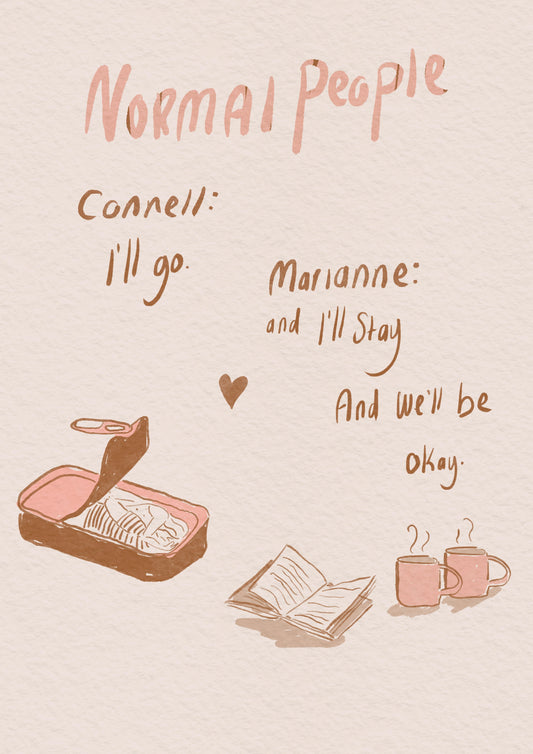 Normal People
Connell:
I'll go.
Marianne:
and I'll Stay
And We'll be
okay.